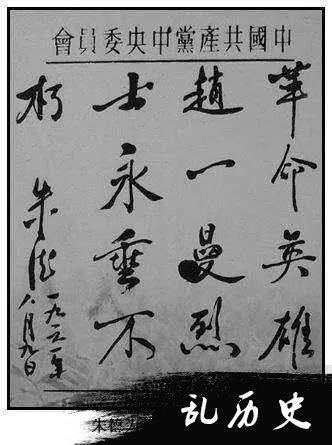 中國共產黨中央委員會
革命英雄
趙一曼烈
士永垂不
朽
朱德
一九六一年
八月九日
乱历史